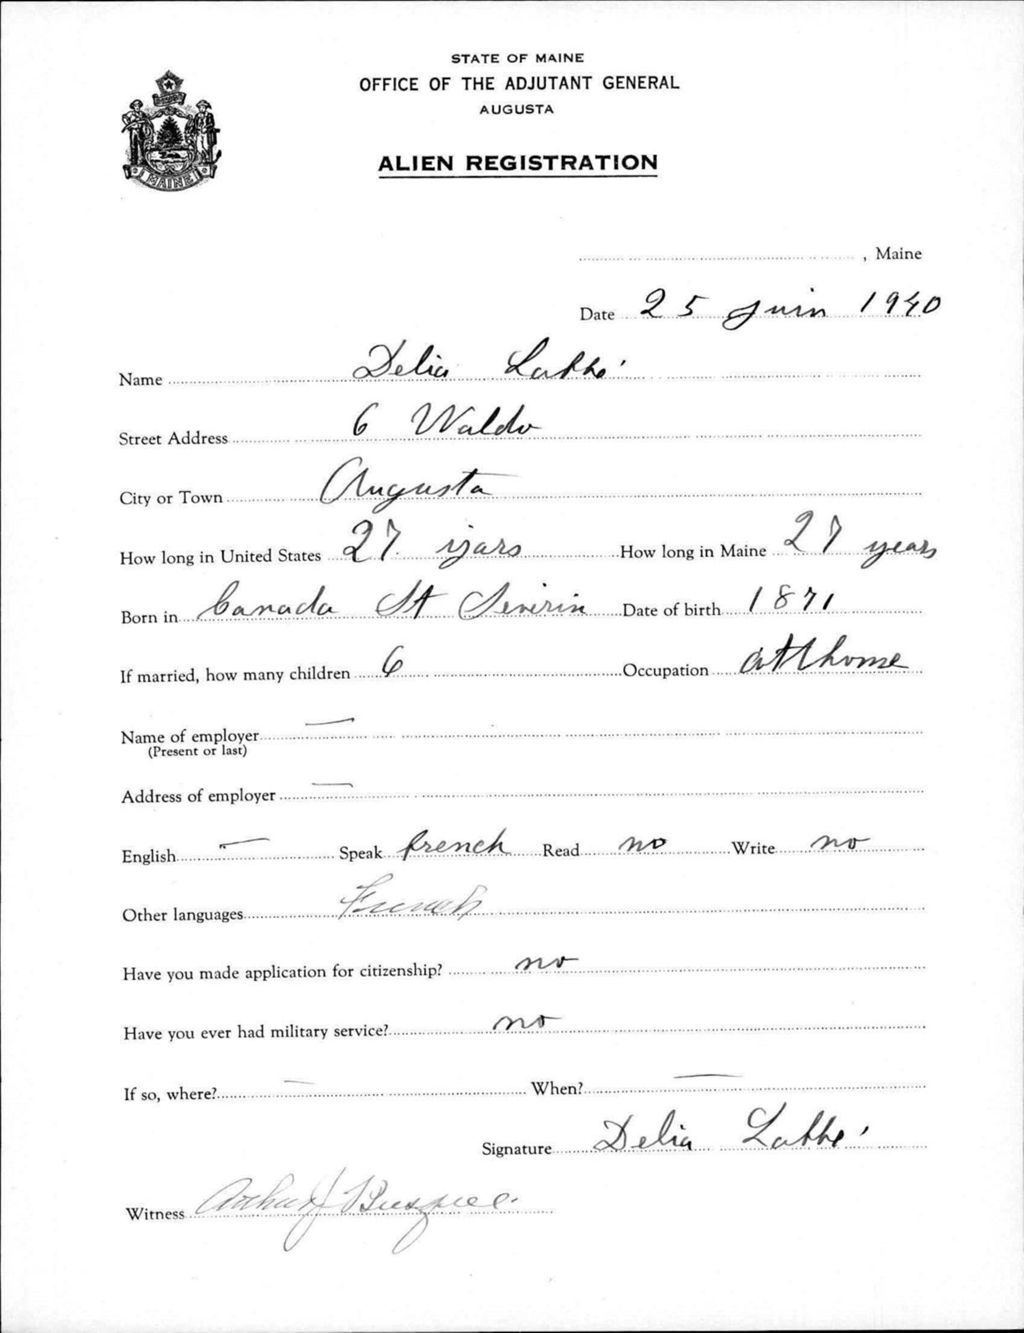 STATE OF MAINE
OFFICE OF THE ADJUTANT GENERAL
AUGUSTA
ALIEN REGISTRATION
MAINE
, Maine
Date 25 Juin 1940
Name Delia
Street Address 6 Waldo
City or Town Augusta
How long in United States 27 years How long in Maine 27 years
Born in Canada St Severin Date of birth 1871
If married, how many children 6 Occupation at home
Name of employer —
(Present or last)
Address of employer —
English — Speak french Read no Write no
Other languages French
Have you made application for citizenship? no
Have you ever had military service? no
If so, where? — When? —
Signature Delia
Witness Arthur J